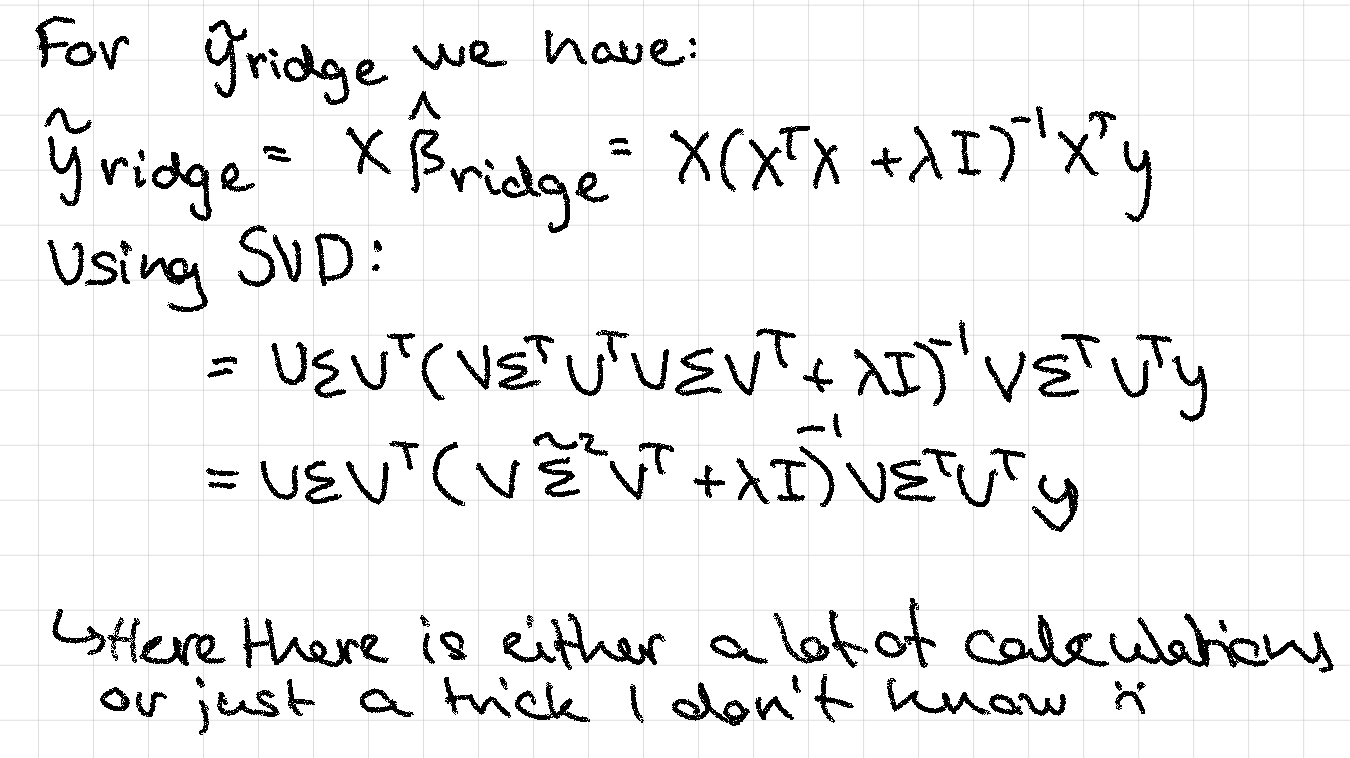 For ỹridge we have:
ỹridge = X β̂ridge = X(XᵀX + λI)⁻¹Xᵀy
Using SVD:
= UΣVᵀ(VΣᵀUᵀUΣVᵀ + λI)⁻¹VΣᵀUᵀy
= UΣVᵀ(VΣ̃²Vᵀ + λI)⁻¹VΣᵀUᵀy
↳Here there is either a lot of calculations
or just a trick I don't know :(